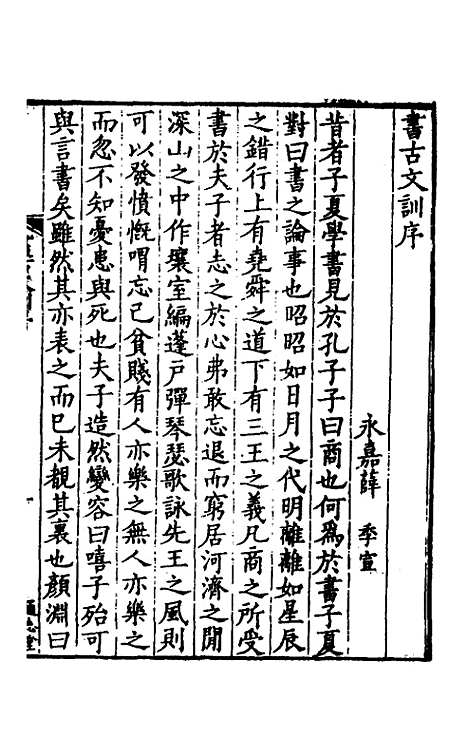 書古文訓序
永嘉薛 季宣
昔者子夏學書見於孔子子曰商也何爲於書子夏
對曰書之論事也昭昭如日月之代明離離如星辰
之錯行上有堯舜之道下有三王之義凡商之所受
書於夫子者志之於心弗敢忘退而窮居河濟之閒
深山之中作壤室編蓬户彈琴瑟歌詠先王之風則
可以發憤慨喟忘己貧賤有人亦樂之無人亦樂之
而忽不知憂患與死也夫子造然變容曰嘻子殆可
與言書矣雖然其亦表之而已未覩其裏也顏淵曰
通志堂